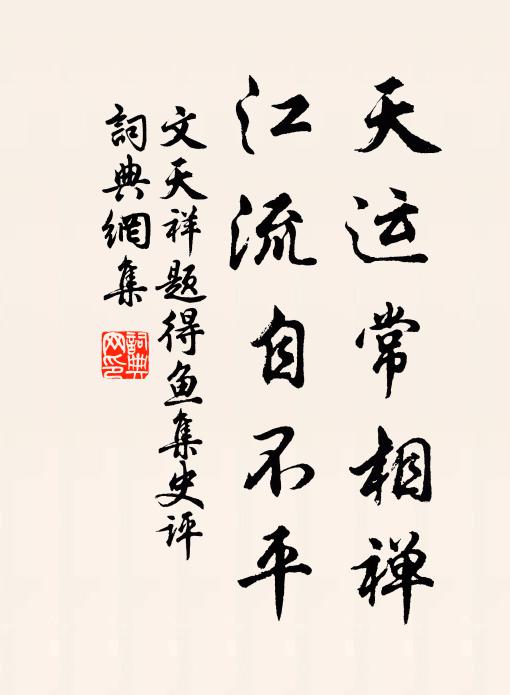 天运常相禅
江流自不平
文天祥题得鱼集史评
詞典網集
詞典网印